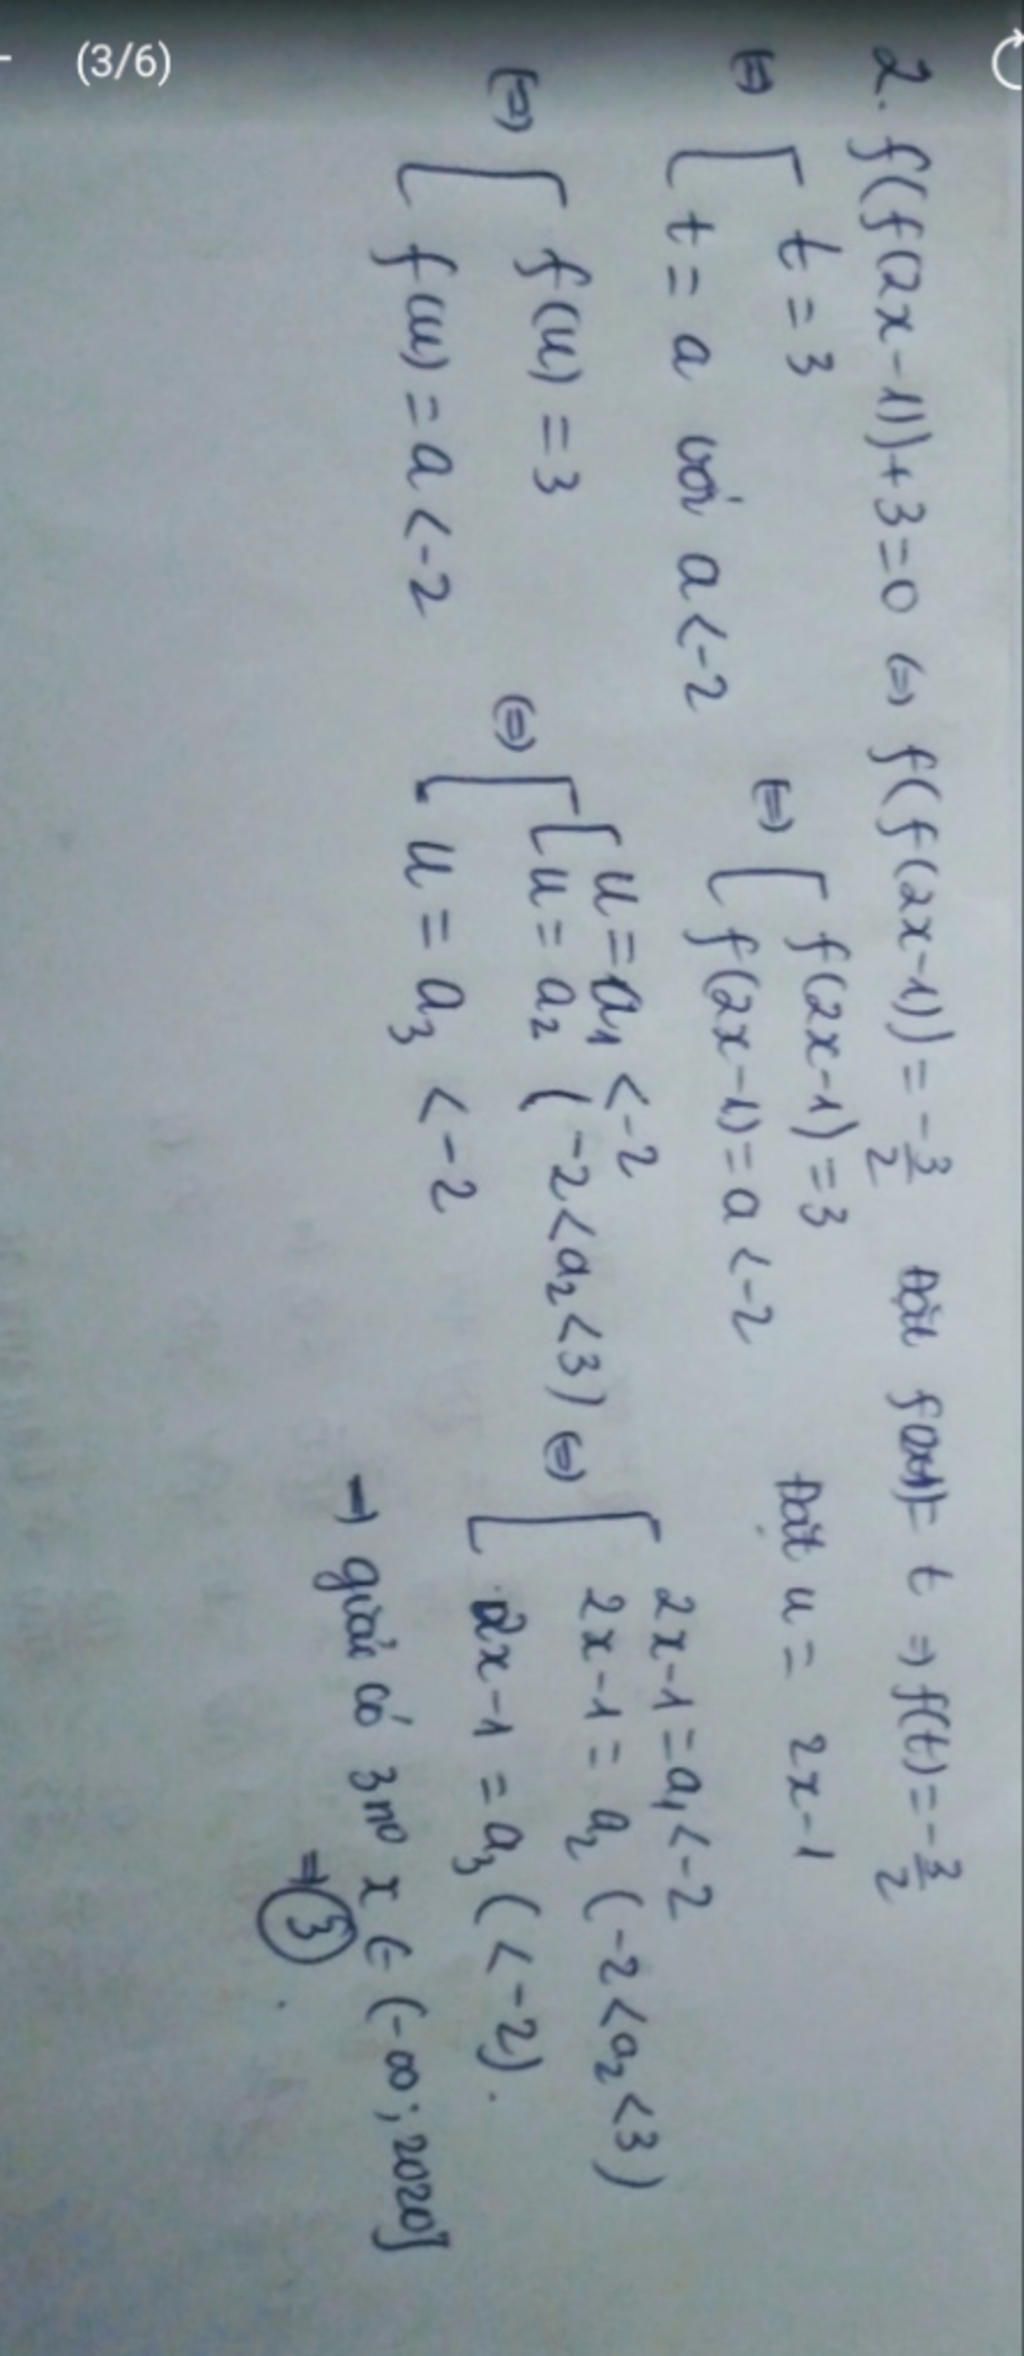 (3/6)
2. f(f(2x-1))+3=0 (=) f(f(2x-1)) = -3/2 Đặt f(2x-1)= t => f(t)= -3/2
(=) [ t = 3
t = a với a < -2
(=) [ f(2x-1) = 3
f(2x-1) = a < -2
Đặt u = 2x-1
(=) [ f(u) = 3
f(u) = a < -2
(=) [ [ u = a₁ < -2
u = a₂ ( -2 < a₂ < 3 )
u = a₃ < -2
(=) [ 2x-1 = a₁ < -2
2x-1 = a₂ ( -2 < a₂ < 3 )
2x-1 = a₃ ( < -2 ).
→ giải có 3 nº x ∈ (-∞ ; 2020]
=>